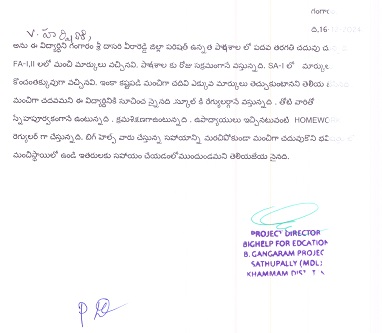 గంగారం
ది,16-12-2024
V. హర్షిణి,
అను ఈ విద్యార్థిని గంగారం శ్రీ దాసరి వీరారెడ్డి జిల్లా పరిషత్ ఉన్నత పాఠశాల లో పదవ తరగతి చదువు
FA-I,II లలో మంచి మార్కులు వచ్చినవి. పాఠశాల కు రోజు సక్రమంగానే వస్తున్నది. SA-I లో మార్కులు
కొంచంతక్కువుగా వచ్చినవి. ఇంకా కష్టపడి మంచిగా చదివి ఎక్కువ మార్కులు తెచ్చుకుంటానని
మంచిగా చదవమని ఈ విద్యార్థినికి సూచించ నైనది .స్కూల్ కి రెగ్యులర్గానే వస్తున్నది . తోటి వారితో
స్నేహపూర్వకంగానే ఉంటున్నది . క్రమశిక్షణగాఉంటున్నది . ఉపాద్యాయులు ఇచ్చినటువంటి HOMEWORK
రెగ్యులర్ గా చేస్తున్నది. బిగ్ హెల్ప్ వారు చేస్తున్న సహాయాన్ని మరచిపోకుండా మంచిగా చదువుకొని
మంచిస్థాయిలో ఉండి ఇతరులకు సహాయం చేయడంలోముందుండమని తెలియజేయ నైనది.
PROJECT DIRECTOR
BIGHELP FOR EDCATION
B. GANGARAM PROJEC
SATHUPALLY (MDL)
KHAMMAM DIST. T.S